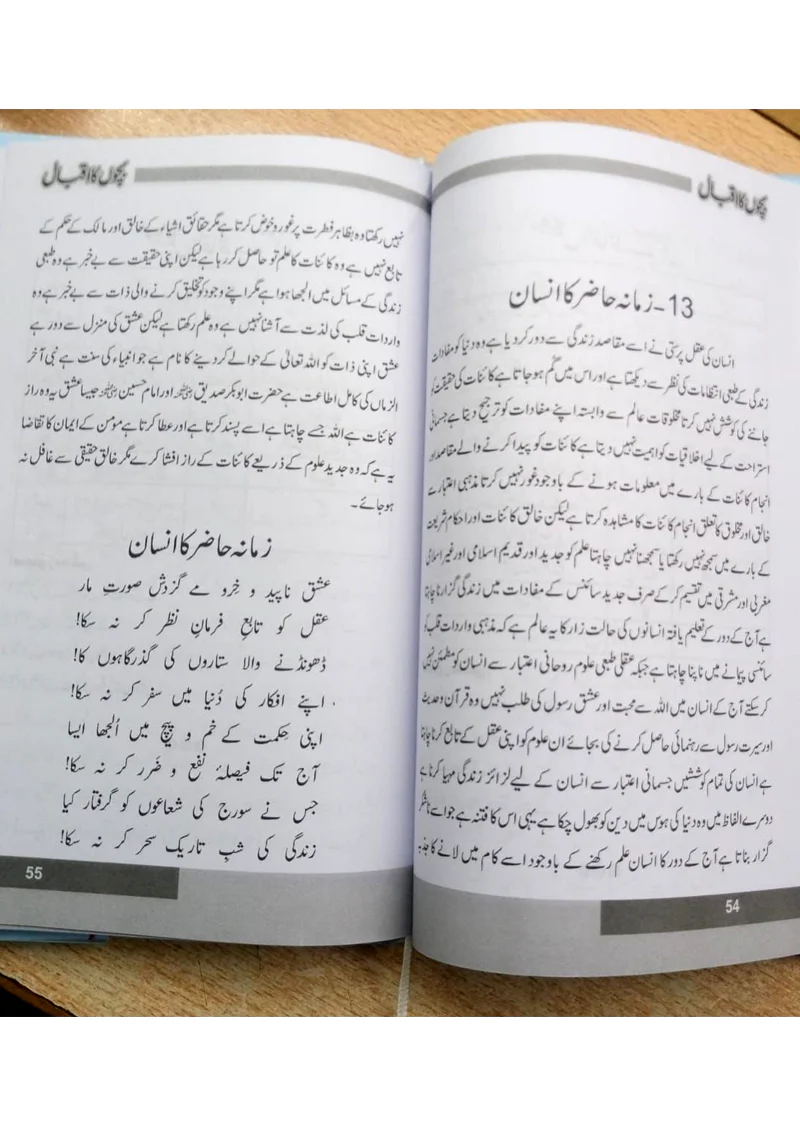 بچوں کا اقبال
13- زمانہ حاضر کا انسان
انسان کی عقل پرستی نے اسے مقاصد زندگی سے دور کر دیا ہے وہ دنیا کو مفادات
زندگی کے طبعی انتظامات کی نظر سے دیکھتا ہے اور اس میں گم ہو جاتا ہے کائنات کی حقیقت کو
جاننے کی کوشش نہیں کرتا مخلوقات عالم سے وابستہ اپنے مفادات کو ترجیح دیتا ہے جسمانی
استراحت کے لیے اخلاقیات کو اہمیت نہیں دیتا ہے کائنات کو پیدا کرنے والے مقاصد اور
انجام کائنات کے بارے میں معلومات ہونے کے باوجود غور نہیں کرتا مذہبی اعتبار سے
خالق اور مخلوق کا تعلق انجام کائنات کا مشاہدہ کرتا ہے لیکن خالق کائنات اور احکام شریعت
کے بارے میں سمجھ نہیں رکھتا یا سمجھنا نہیں چاہتا علم کو جدید اور قدیم اسلامی اور غیر اسلامی
مغربی اور مشرقی میں تقسیم کر کے صرف جدید سائنس کے مفادات میں زندگی گزارنا چاہتا
ہے آج کے دور کے تعلیم یافتہ انسانوں کی حالت زار کا یہ عالم ہے کہ مذہبی واردات قلب کو
سائنسی پیمانے میں ناپنا چاہتا ہے جبکہ عقلی طبعی علوم روحانی اعتبار سے انسان کو مطمئن نہیں
کر سکتے آج کے انسان میں اللہ سے محبت اور عشق رسول کی طلب نہیں وہ قرآن و حدیث
اور سیرت رسول سے رہنمائی حاصل کرنے کی بجائے ان علوم کو اپنی عقل کے تابع کرنا چاہتا
ہے انسان کی تمام کوششیں جسمانی اعتبار سے انسان کے لیے لزائز زندگی مہیا کرنا ہے
دوسرے الفاظ میں وہ دنیا کی ہوس میں دین کو بھول چکا ہے یہی اس کا فتنہ ہے جو اسے ناشکر
گزار بناتا ہے آج کے دور کا انسان علم رکھنے کے باوجود اسے کام میں لانے کا جذبہ
54
بچوں کا اقبال
نہیں رکھتا وہ بظاہر فطرت پر غور و خوض کرتا ہے مگر حقائق اشیاء کے خالق اور مالک کے حکم کے
تابع نہیں ہے وہ کائنات کا علم تو حاصل کر رہا ہے لیکن اپنی حقیقت سے بے خبر ہے وہ طبعی
زندگی کے مسائل میں الجھا ہوا ہے مگر اپنے وجود کو تخلیق کرنے والی ذات سے بے خبر ہے وہ
واردات قلب کی لذت سے آشنا نہیں ہے وہ علم رکھتا ہے لیکن عشق کی منزل سے دور ہے
عشق اپنی ذات کو اللہ تعالیٰ کے حوالے کر دینے کا نام ہے جو انبیاء کی سنت ہے نبی آخر
الزماں کی کامل اطاعت ہے حضرت ابوبکر صدیق رضی اللہ عنہ اور امام حسین رضی اللہ عنہ جیسا عشق یہ وہ راز
کائنات ہے اللہ جسے چاہتا ہے اسے پسند کرتا ہے اور عطا کرتا ہے مومن کے ایمان کا تقاضا
یہ ہے کہ وہ جدید علوم کے ذریعے کائنات کے راز افشا کرے مگر خالق حقیقی سے غافل نہ
ہو جائے۔
زمانہ حاضر کا انسان
عشق ناپید و خِرو مے گزدش صورتِ مار
عقل کو تابعِ فرمانِ نظر کر نہ سکا!
ڈھونڈنے والا ستاروں کی گذرگاہوں کا!
اپنے افکار کی دُنیا میں سفر کر نہ سکا!
اپنی حِکمت کے خم و پیچ میں اُلجھا ایسا
آج تک فیصلۂ نفع و ضَرر کر نہ سکا!
جس نے سورج کی شعاعوں کو گرفتار کیا
زندگی کی شبِ تاریک سحر کر نہ سکا!
55